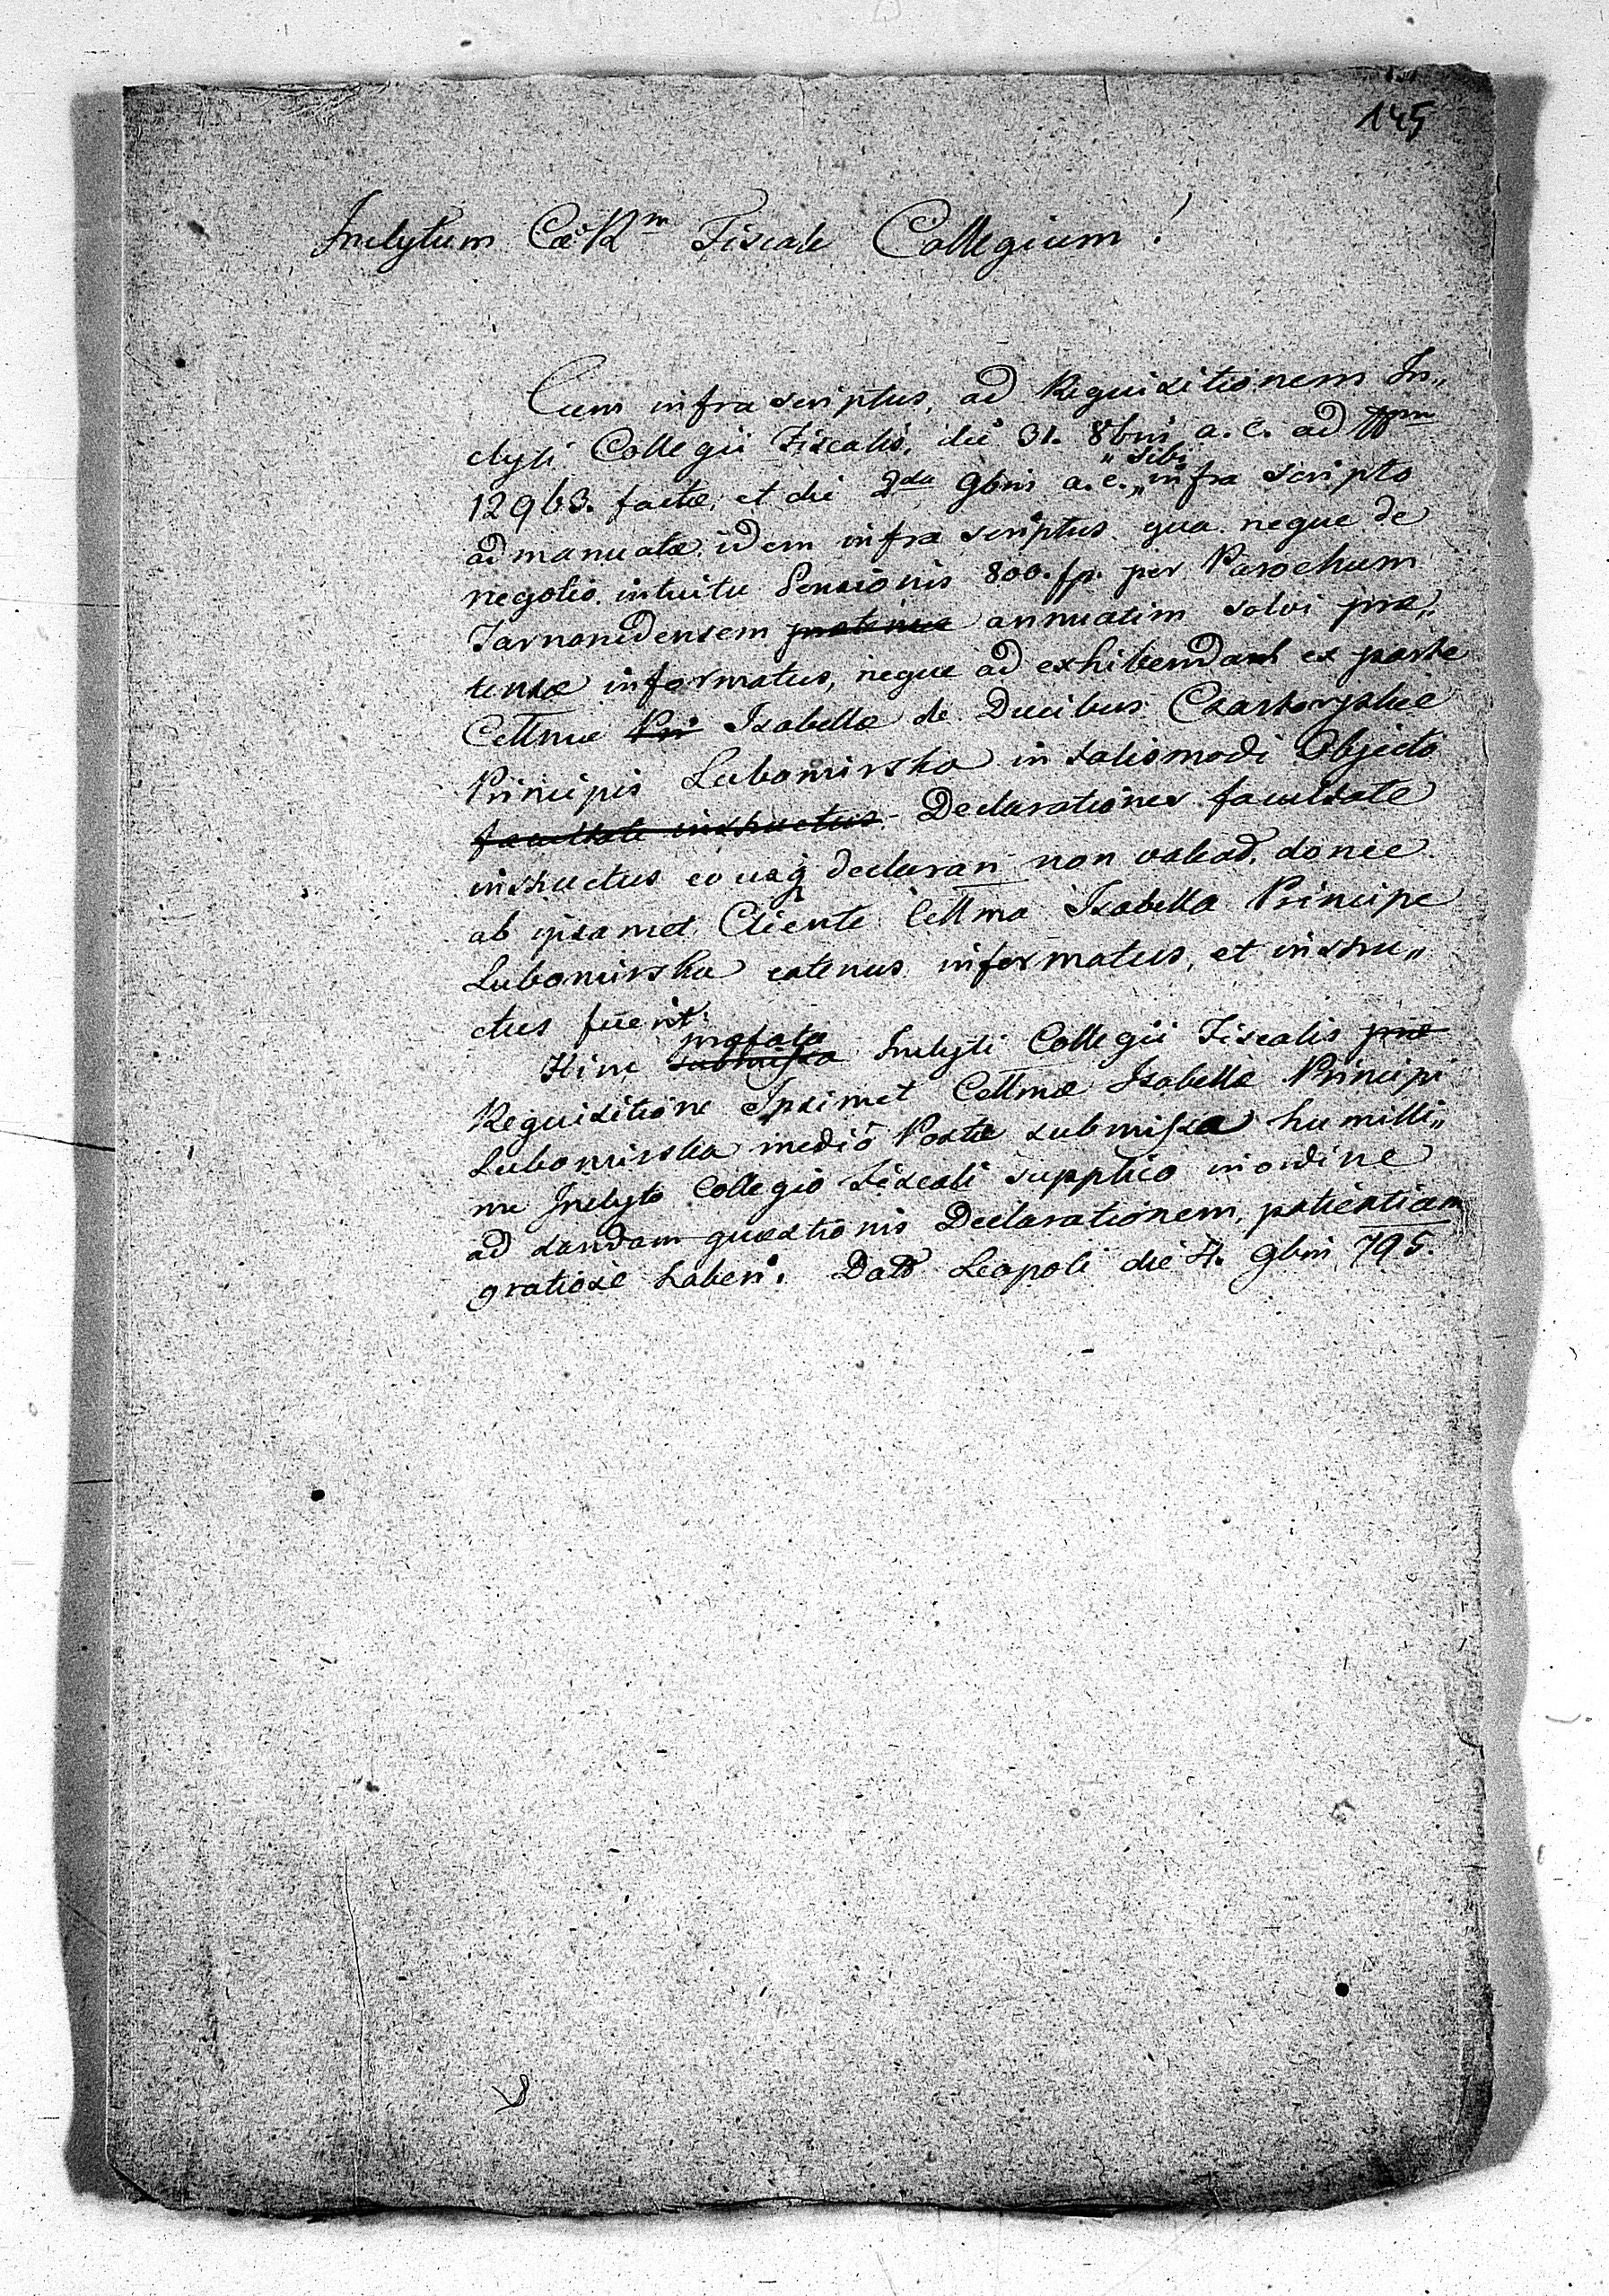 145
Inclytum Cæo Rm Fiscale Collegium!
Cum infrascriptus, ad Requisitionem In„
clyti Collegii Fiscalis, die 31. 8bris a. c. ad Nrum
12963. factæ, et die 2da 9bris a. c. „ sibi „ infra scripto
admanuatæ, idem infra scriptus qua neque de
negotio intuitu Pensionis 800. fp. per Parochum
Jarnonidensem annuatim solvi præ„
tensæ informatus, neque ad exhibendas ex parte
Celsmæ Isabellæ de Ducibus Czartoryskie
Principis Lubomirska in taliamodi Objecto
facultate instructus Declarationes facultate
instructus eo usq declarari non valeat, donec
ab ipsamet Cliente Cellma Isabella Principe
Lubomirska eatenus informatus, et instru„
ctus fuerit.
Hinc præfata Inclyti Collegii Fiscalis præ
Requisitione Ipsimet Cellmæ Isabellæ Principi
Lubomirska medio Postæ submissa humilli„
me Inclyto Collegio Fiscali supplico in ordine
ad dandam quæstionis Declarationem, patientiam
gratiose haberi. Datt Leopoli die 4. 9bris 795.